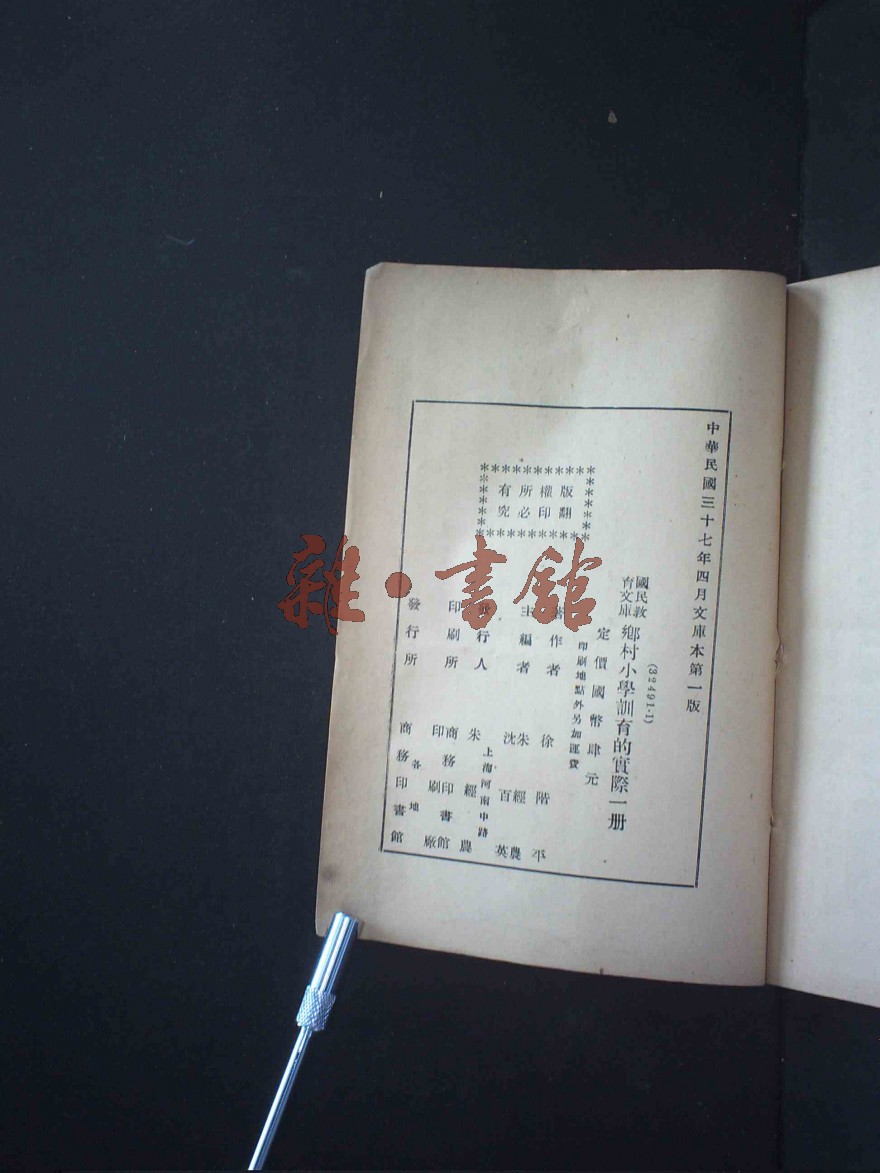 中華民國三十七年四月文庫本第一版
(32491·1)
國民教育文庫 鄉村小學訓育的實際一册
定價國幣肆元
印刷地點外另加運費
版權所有
翻印必究
著作者 徐階平
主編者 朱經農 沈百英
發行人 朱經農
上海河南中路
印刷所 商務印書館印刷廠
發行所 商務印書館
各地
雜·書館